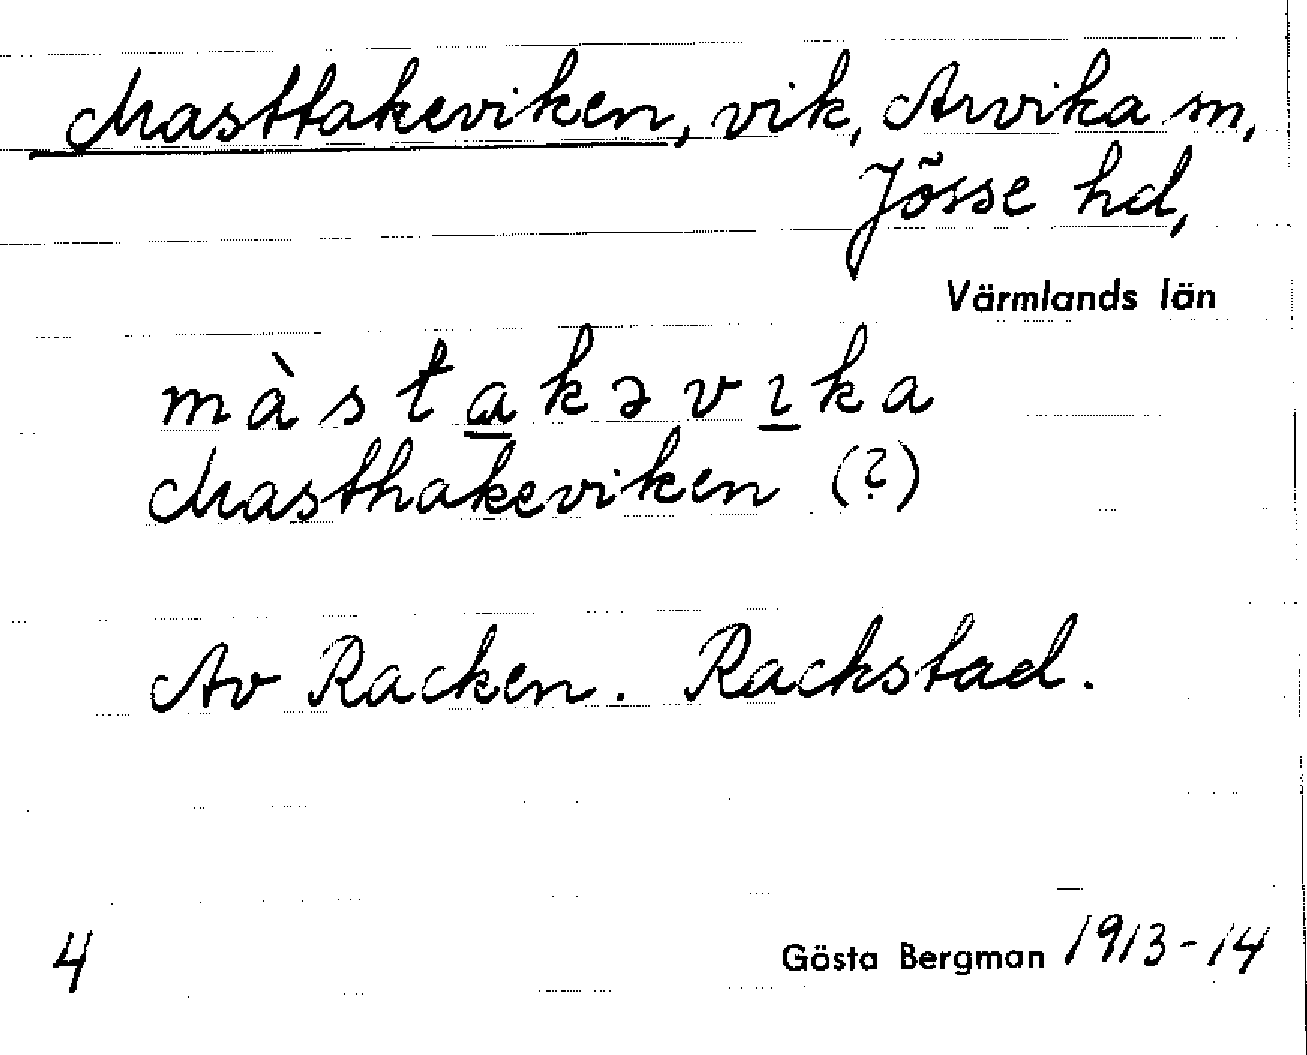 Masttakeviken, vik, Arvika sn,
Jösse hd,
Värmlands län
màstakəvıka
Masthakeviken (?)
Av Racken. Rackstad.
4 Gösta Bergman 1913-14